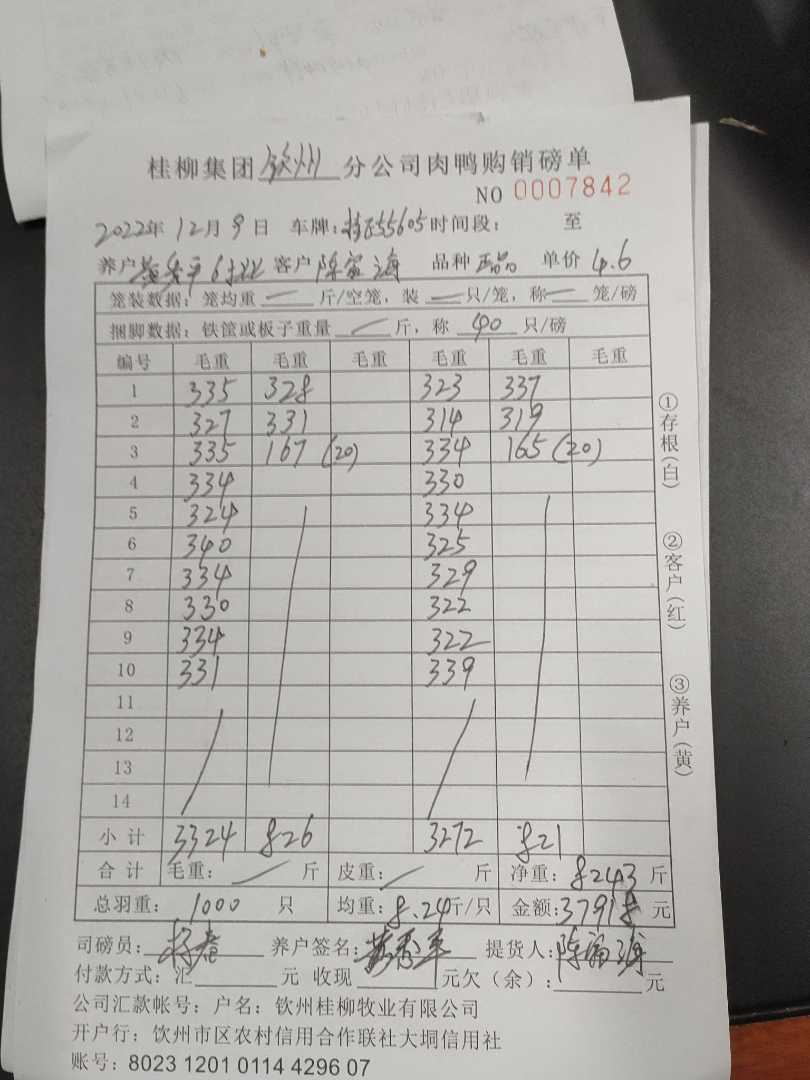 桂柳集团 钦州 分公司肉鸭购销磅单
NO 0007842
2022年 12月 9日 车牌: 55605 时间段: 至
养户 客户 陈富海 品种 正品 单价 4.6
笼装数据: 笼均重 — 斤/空笼, 装 — 只/笼, 称 — 笼/磅
捆脚数据: 铁筐或板子重量 — 斤, 称 40 只/磅
编号 毛重 毛重 毛重 毛重 毛重 毛重
1 335 328 323 337
2 327 331 314 319
3 335 167 (20) 334 165 (20)
4 334 330
5 324 334
6 340 325
7 334 329
8 330 322
9 334 322
10 331 339
11
12
13
14
小计 3324 826 3272 821
合计 毛重: — 斤 皮重: — 斤 净重: 8243 斤
总羽重: 1000 只 均重: 8.24 斤/只 金额: 37918 元
司磅员: 养户签名: 提货人: 陈富海
付款方式: 汇 元 收现 元欠(余): 元
公司汇款帐号: 户名: 钦州桂柳牧业有限公司
开户行: 钦州市区农村信用合作联社大垌信用社
账号: 8023 1201 0114 4296 07
①存根(白)
②客户(红)
③养户(黄)